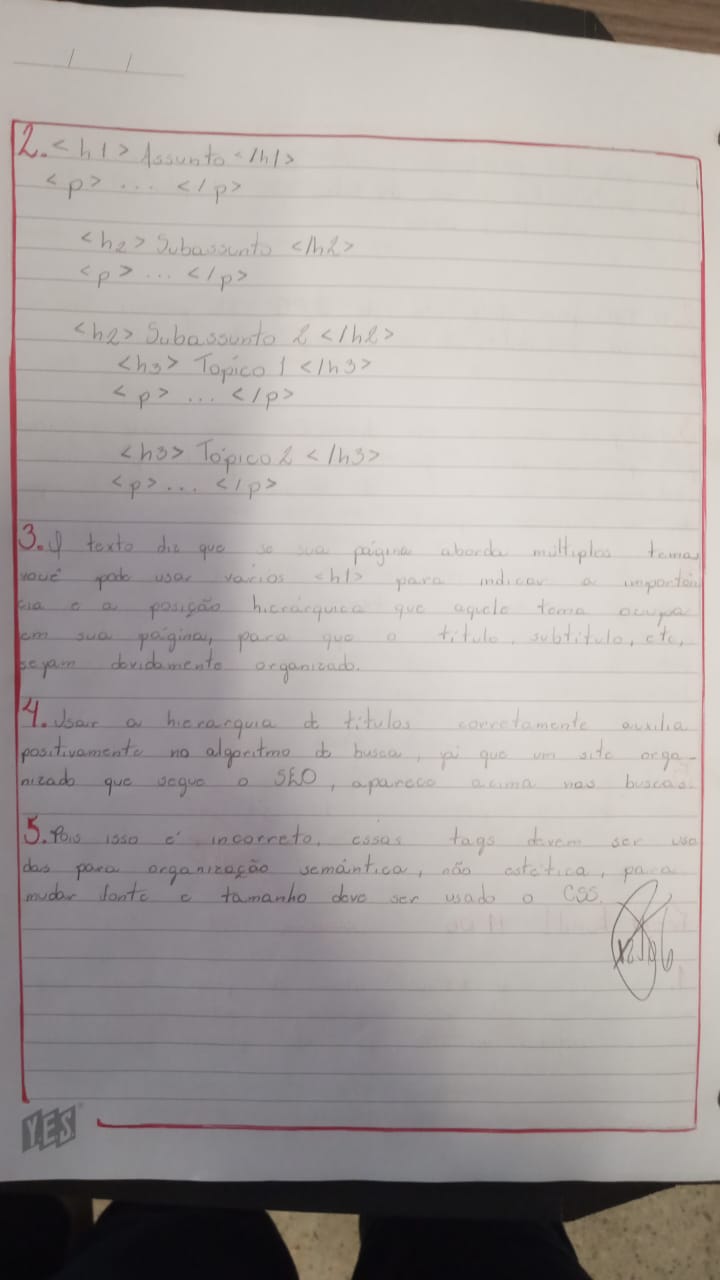 / /
2. <h1> Assunto </h1>
<p> ... </p>
<h2> Subassunto </h2>
<p> ... </p>
<h2> Subassunto 2 </h2>
<h3> Tópico 1 </h3>
<p> ... </p>
<h3> Tópico 2 </h3>
<p> ... </p>
3. O texto diz que se sua página aborda múltiplos temas
você pode usar varios <h1> para indicar a importân
cia e a posição hierárquica que aquele tema ocupa
em sua página, para que o título, subtítulo, etc,
sejam devidamente organizado.
4. Usar a hierarquia de títulos corretamente auxilia
positivamente no algoritmo de busca, já que um site orga-
nizado que segue o SEO, aparece acima nas buscas.
5. Pois isso é incorreto, essas tags devem ser usa
das para organização semântica, não estética, para
mudar fonte e tamanho deve ser usado o CSS.
YES